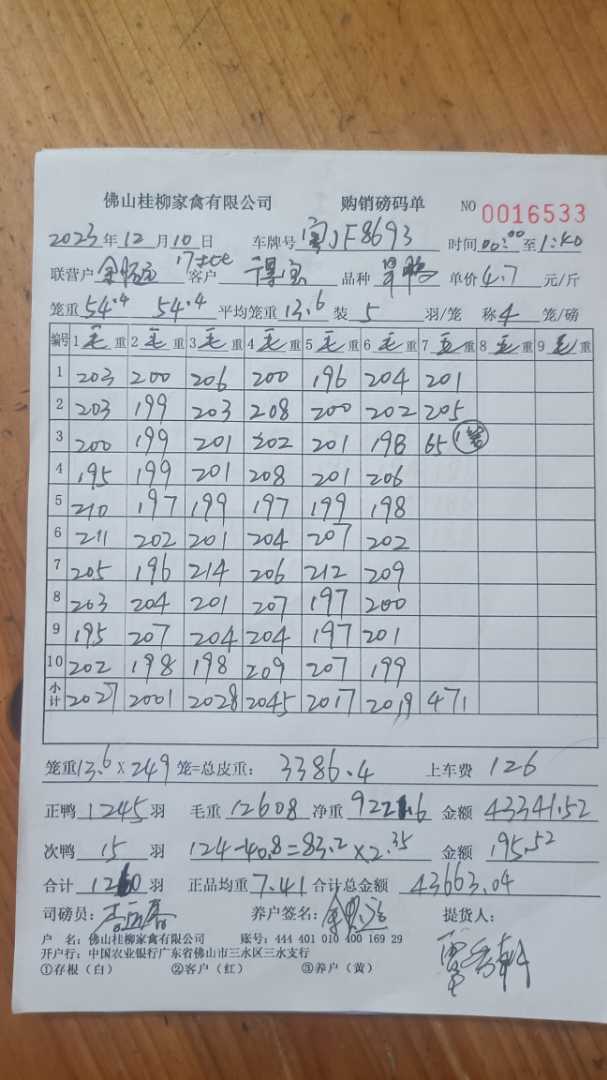 佛山桂柳家禽有限公司 购销磅码单 NO 0016533
2023年12月10日 车牌号 F8693 时间00:00至1:40
联营户 客户 得宝 品种 单价4.7元/斤
笼重54.4 54.4 平均笼重13.6装5羽/笼 称4笼/磅
编号 1毛重 2毛重 3毛重 4毛重 5毛重 6毛重 7毛重 8毛重 9毛重
1 203 200 206 200 196 204 201
2 203 199 203 208 200 202 205
3 200 199 201 202 201 198 65
4 195 199 201 208 201 206
5 210 197 199 197 199 198
6 211 202 201 204 207 202
7 205 196 214 206 212 209
8 203 204 201 207 197 200
9 195 207 204 204 197 201
10 202 198 198 209 207 199
小计 2027 2001 2028 2045 2017 2019 471
笼重13.6×249笼=总皮重:3386.4 上车费 126
正鸭1245羽 毛重12608净重9221.6 金额43341.52
次鸭15羽 124-40.8=83.2×2.35 金额195.52
合计1260羽 正品均重7.41合计总金额43663.04
司磅员: 养户签名: 提货人:
户 名:佛山桂柳家禽有限公司 账号:444 401 010 400 169 29
开户行:中国农业银行广东省佛山市三水区三水支行
①存根(白) ②客户(红) ③养户(黄)